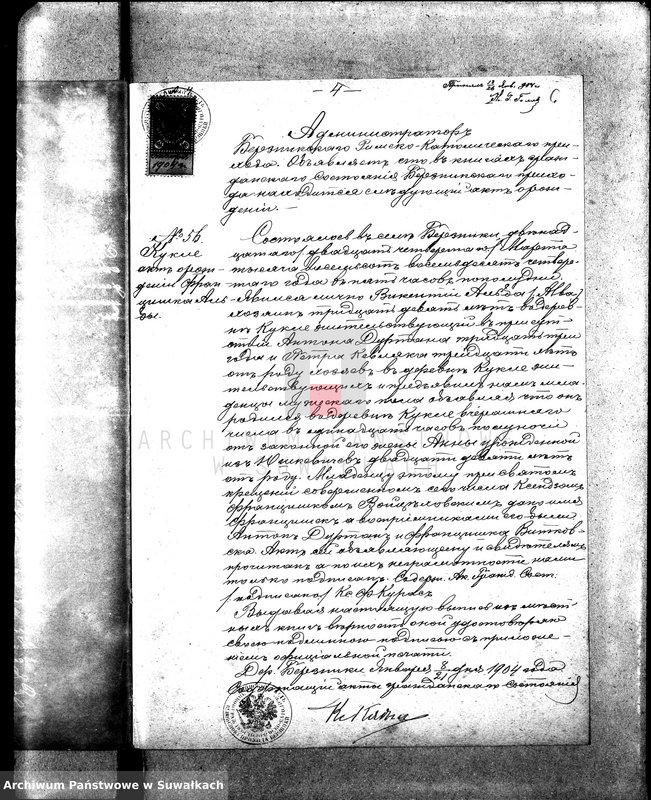 — 4 —
Администраторъ
Березникскаго Римско-Католическаго при-
хода. Объявляетъ что въ книгахъ граж-
данскаго состоянія Березникскаго прихо-
да находится слѣдующій актъ рож-
деніи. —
№ 56.
Кукле
актъ рож-
деніи Фран-
цишка Аль-
бы.
Состоялось въ селѣ Березники двѣнад-
цатаго / двадцать четвертаго / Марта
тысяча восемьсотъ восемьдесятъ четвер-
таго года въ пять часовъ пополудни.
Явился лично Викентій Альба
хозяинъ тридцать девять лѣтъ въ дерев-
нѣ Кукле жительствующій въ присут-
ствіи Антона Дуртана тридцать три
года и Петра Кевляка тридцать лѣтъ
отъ роду хозяевъ въ деревнѣ Кукле жи-
тельствующихъ и предъявилъ намъ мла-
денца мужескаго пола объявляя что онъ
родился въ деревнѣ Кукле вчерашняго
числа въ одинадцать часовъ пополуночи
отъ законной его жены Анны урожденной
изъ Юшкевичевъ двадцати девяти лѣтъ
отъ роду. Младенцу этому при святомъ
крещеніи совершенномъ сего числа Ксендзомъ
Францишкомъ Войцѣловскимъ дано имя
Францишекъ а воспріемниками его были
Антонъ Дуртанъ и Францишка Витков-
ска. Актъ сей объявляющему и свидѣтелямъ
прочитанъ а по ихъ неграмотности нами
только подписанъ. Содерж. Ак. Гражд. Сост.
/ подписано / Кс. Ф. Курахъ
Выдавая настоящую выпись изъ мѣст-
ныхъ книгъ вѣрность оной удостовѣряю
своею подлинною подписью съ приложе-
ніемъ официальной печати.
Дер. Березники Января 8/21 дня 1904 года
Содержащій акты гражданскаго состоянія
ARCHIWUM
W
Archiwum Państwowe w Suwałkach